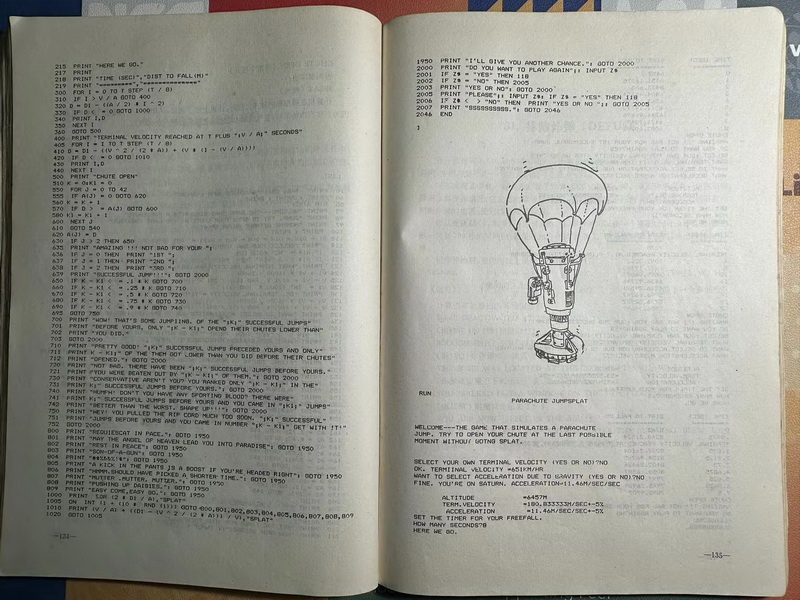 215 PRINT "HERE WE GO."
217 PRINT
218 PRINT "TIME (SEC)","DIST TO FALL(M)"
219 PRINT "==========","==============="
300 FOR I = 0 TO T STEP (T / 8)
310 IF I > V / A GOTO 400
320 D = D1 - ((A / 2) * I ^ 2)
330 IF D < = 0 GOTO 1000
340 PRINT I,D
350 NEXT I
360 GOTO 500
400 PRINT "TERMINAL VELOCITY REACHED AT T PLUS ";V / A;" SECONDS"
405 FOR I = I TO T STEP (T / 8)
410 D = D1 - ((V ^ 2 / (2 * A)) + (V * (I - (V / A))))
420 IF D < = 0 GOTO 1010
430 PRINT I,D
440 NEXT I
500 PRINT "CHUTE OPEN"
510 K = 0:K1 = 0
550 FOR J = 0 TO 42
555 IF A(J) = 0 GOTO 620
560 K = K + 1
570 IF D > = A(J) GOTO 600
580 K1 = K1 + 1
600 NEXT J
610 GOTO 540
620 A(J) = D
630 IF J > 2 THEN 650
635 PRINT "AMAZING !!! NOT BAD FOR YOUR ";
636 IF J = 0 THEN PRINT "1ST ";
637 IF J = 1 THEN PRINT "2ND ";
638 IF J = 2 THEN PRINT "3RD ";
639 PRINT "SUCCESSFUL JUMP!!!": GOTO 2000
650 IF K - K1 < = .1 * K GOTO 700
660 IF K - K1 < = .25 * K GOTO 710
670 IF K - K1 < = .5 * K GOTO 720
680 IF K - K1 < = .75 * K GOTO 730
690 IF K - K1 < = .9 * K GOTO 740
695 GOTO 750
700 PRINT "WOW! THAT'S SOME JUMPIING. OF THE ";K;" SUCCESSFUL JUMPS"
701 PRINT "BEFORE YOURS, ONLY ";K - K1;" OPEND THEIR CHUTES LOWER THAN"
702 PRINT "YOU DID."
703 GOTO 2000
710 PRINT "PRETTY GOOD! ";K;" SUCCESSFUL JUMPS PRECEDED YOURS AND ONLY"
711 PRINT K - K1;" OF THE THEM GOT LOWER THAN YOU DID BEFORE THEIR CHUTES"
712 PRINT "OPENED.": GOTO 2000
720 PRINT "NOT BAD. THERE HAVE BEEN ";K;" SUCCESSFUL JUMPS BEFORE YOURS.
721 PRINT "YOU WERE BEATEN OUT BY ";K - K1;" OF THEM.": GOTO 2000
730 PRINT "CONSERVATIVE AREN'T YOU? YOU RANKED ONLY ";K - K1;" IN THE"
731 PRINT K;" SUCCESSFUL JUMPS BEFORE YOURS.": GOTO 2000
740 PRINT "HUMPH! DON'T YOU HAVE ANY SPORTING BLOOD? THERE WERE"
741 PRINT K;" SUCCESSFUL JUMPS BEFORE YOURS AND YOU CAME IN ";K1;" JUMPS"
742 PRINT "BETTER THAN THE WORST. SHAPE UP!!!": GOTO 2000
750 PRINT "HEY! YOU PULLED THE RIP CORD MUCH TOO SOON. ";K;" SUCCESSFUL"
751 PRINT "JUMPS BEFORE YOURS AND YOU CAME IN NUMBER ";K - K1;" GET WITH IT!"
752 GOTO 2000
800 PRINT "REQUIESCAT IN PACE.": GOTO 1950
801 PRINT "MAY THE ANGEL OF HEAVEN LEAD YOU INTO PARADISE": GOTO 1950
802 PRINT "REST IN PEACE": GOTO 1950
803 PRINT "SON-OF-A-GUN": GOTO 1950
805 PRINT "A KICK IN THE PANTS IS A BOOST IF YOU'RE HEADED RIGHT": GOTO 1950
806 PRINT "HMMM.SHOULD HAVE PICKED A SHORTER TIME.": GOTO 1950
807 PRINT "MUTTER.MUTTER.MUTTER.": GOTO 1950
808 PRINT "PUSHING UP DAISIES.": GOTO 1950
809 PRINT "EASY COME,EASY GO.": GOTO 1950
1000 PRINT SQR (2 * D1 / A),"SPLAT"
1005 ON INT (1 + (10 * RND (1))) GOTO 800,801,802,803,804,805,806,807,808,809
1010 PRINT (V / A) + ((D1 - (V ^ 2 / (2 * A))) / V),"SPLAT"
1020 GOTO 1005
—134—
1950 PRINT "I'LL GIVE YOU ANOTHER CHANCE.": GOTO 2000
2000 PRINT "DO YOU WANT TO PLAY AGAIN";: INPUT Z$
2001 IF Z$ = "YES" THEN 118
2002 IF Z$ = "NO" THEN 2005
2003 PRINT "YES OR NO": GOTO 2000
2005 PRINT "PLEASE";: INPUT Z$: IF Z$ = "YES" THEN 118
2006 IF Z$ < > "NO" THEN PRINT "YES OR NO ";: GOTO 2005
2007 PRINT "SSSSSSSSSS.": GOTO 2046
2046 END
]
RUN
PARACHUTE JUMPSPLAT
WELCOME---THE GAME THAT SIMULATES A PARACHUTE
JUMP. TRY TO OPEN YOUR CHUTE AT THE LAST POSSIBLE
MOMENT WITHOUT GOING SPLAT.
SELECT YOUR OWN TERMINAL VELOCITY (YES OR NO)?NO
OK. TERMIINAL VELOCITY =651KM/HR
WANT TO SELECT ACCELERATION DUE TO GRAVITY (YES OR NO)?NO
FINE. YOU'RE ON SATURN. ACCELERATION=11.46M/SEC/SEC
ALTITUDE =6457M
TERM.VELOCITY =180.833333M/SEC+-5%
ACCELERATION =11.46M/SEC/SEC+-5%
SET THE TIMER FOR YOUR FREEFALL.
HOW MANY SECONDS?8
HERE WE GO.
—135—